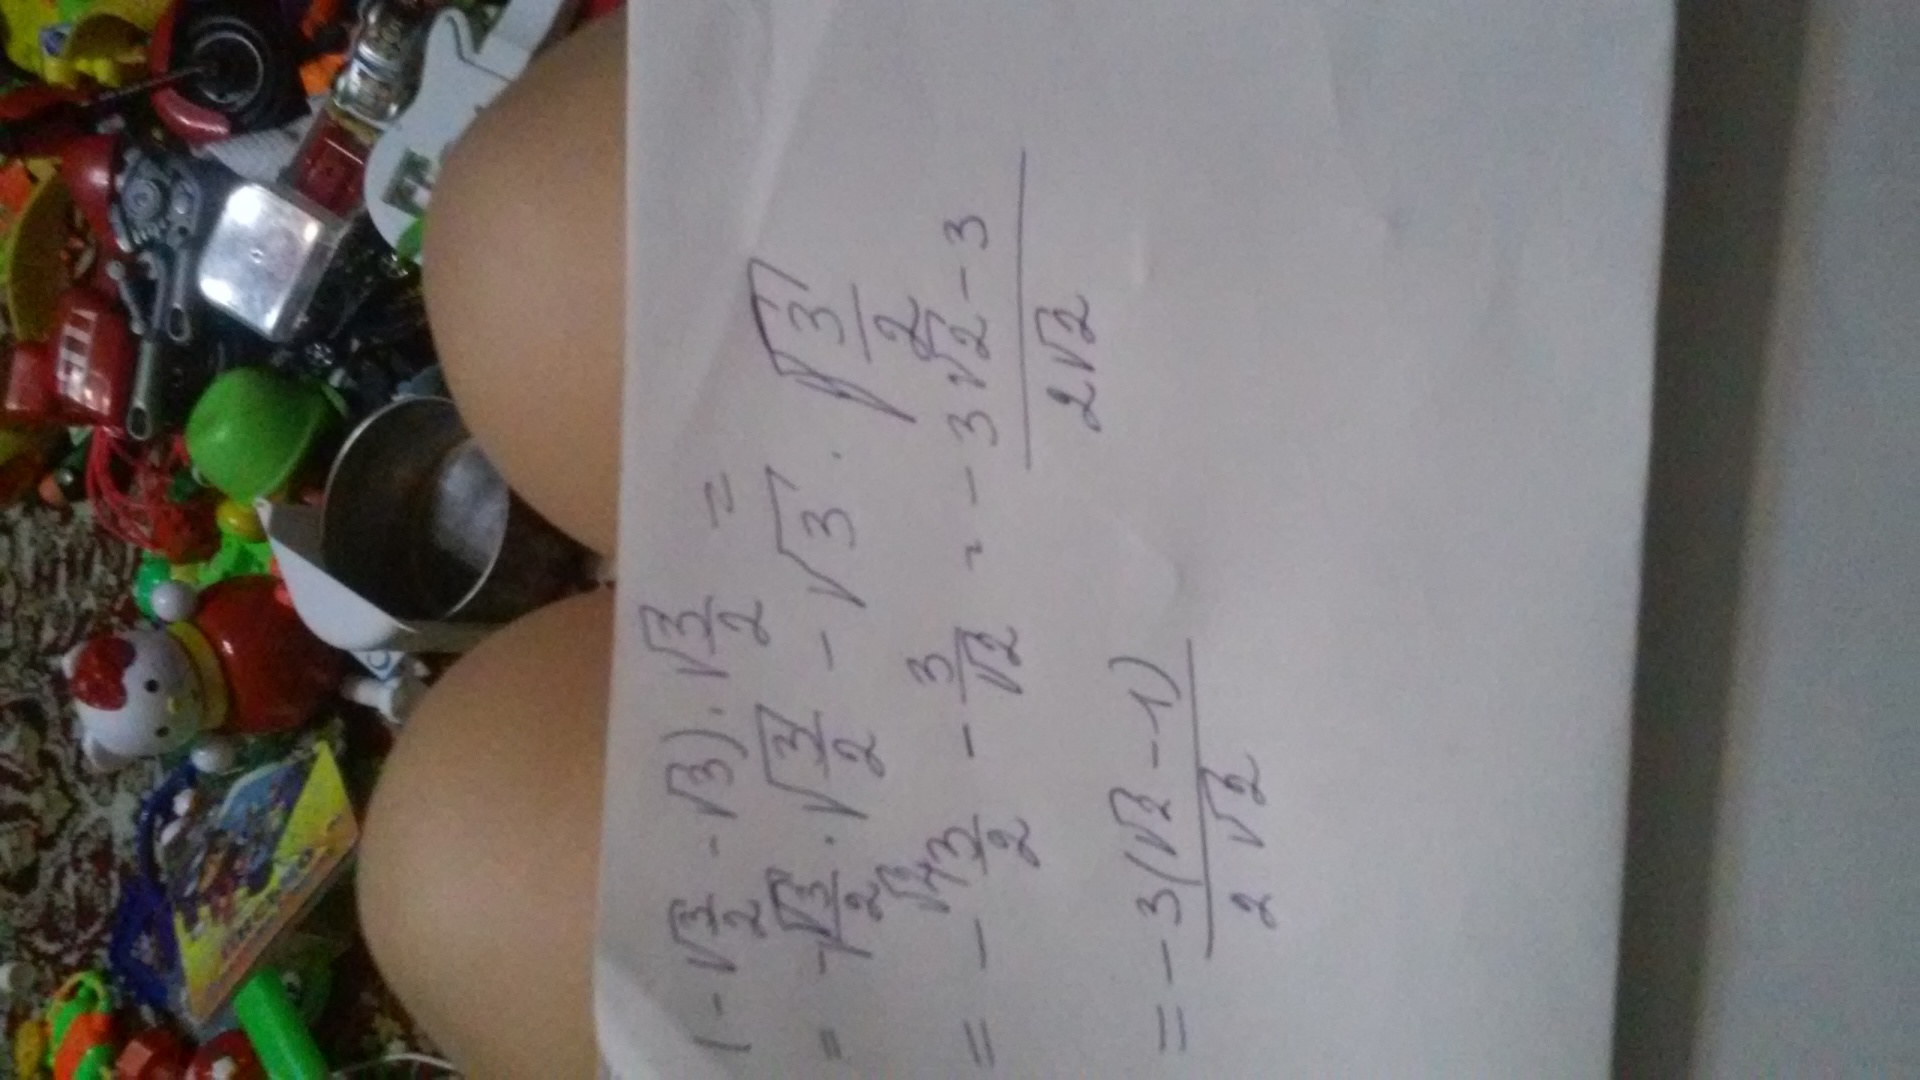 (-√3/2 - √3) · √3/2 =
= -√3/2 · √3/2 - √3 · √3/2
= - 3/2 - 3/√2 = - 3√2 - 3 / 2√2
= - 3(√2 - 1) / 2√2